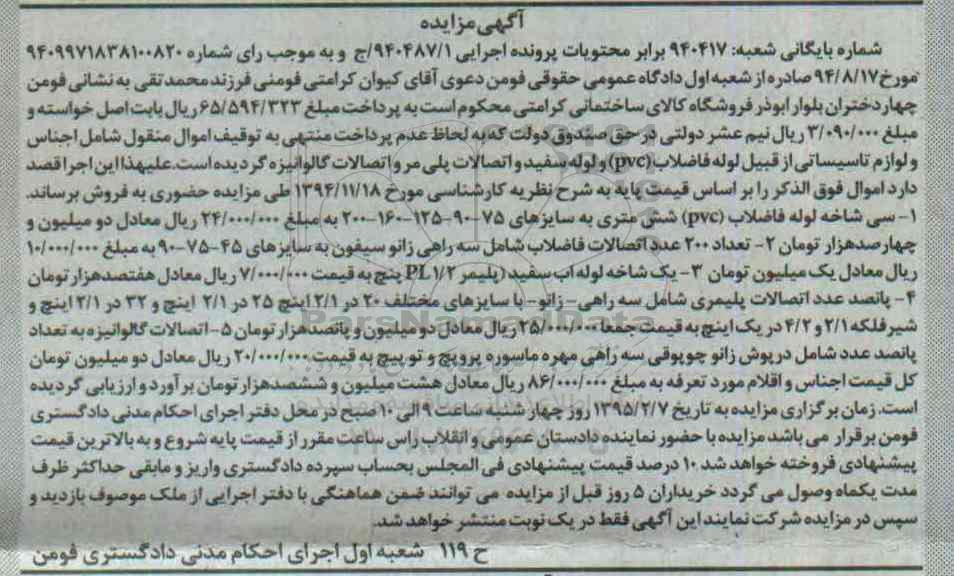 آگهی مزایده
شماره بایگانی شعبه: ۹۴۰۴۱۷ برابر محتویات پرونده اجرایی ۹۴۰۴۸۷/۱/ج و به موجب رای شماره ۹۴۰۹۹۷۱۸۳۸۱۰۰۸۲۰
مورخ ۹۴/۸/۱۷ صادره از شعبه اول دادگاه عمومی حقوقی فومن دعوی آقای کیوان کرامتی فومنی فرزند محمدتقی به نشانی فومن
چهار دختران بلوار ابوذر فروشگاه کالای ساختمانی کرامتی محکوم است به پرداخت مبلغ ۶۵/۵۹۴/۳۲۳ ریال بابت اصل خواسته و
مبلغ ۳/۰۹۰/۰۰۰ ریال نیم عشر دولتی در حق صندوق دولت که به لحاظ عدم پرداخت منتهی به توقیف اموال منقول شامل اجناس
و لوازم تاسیساتی از قبیل لوله فاضلاب (pvc) و لوله سفید و اتصالات پلی مر و اتصالات گالوانیزه گردیده است. علیهذا این اجرا قصد
دارد اموال فوق الذکر را بر اساس قیمت پایه به شرح نظریه کارشناسی مورخ ۱۳۹۴/۱۱/۱۸ طی مزایده حضوری به فروش برساند.
۱- سی شاخه لوله فاضلاب (pvc) شش متری به سایزهای ۷۵-۹۰-۱۲۵-۱۶۰-۲۰۰ به مبلغ ۲۴/۰۰۰/۰۰۰ ریال معادل دو میلیون و
چهارصدهزار تومان ۲- تعداد ۲۰۰ عدد اتصالات فاضلاب شامل سه راهی زانو سیفون به سایزهای ۴۵-۷۵-۹۰ به مبلغ ۱۰/۰۰۰/۰۰۰
ریال معادل یک میلیون تومان ۳- یک شاخه لوله آب سفید (پلیمر PL ۱/۲ پنچ به قیمت ۷/۰۰۰/۰۰۰ ریال معادل هفتصدهزار تومان
۴- پانصد عدد اتصالات پلیمری شامل سه راهی- زانو- با سایزهای مختلف ۲۰ در ۲/۱ اینچ ۲۵ در ۲/۱ اینچ و ۳۲ در ۲/۱ اینچ و
شیرفلکه ۲/۱ و ۴/۲ در یک اینچ به قیمت جمعا ۲۵/۰۰۰/۰۰۰ ریال معادل دو میلیون و پانصدهزار تومان ۵- اتصالات گالوانیزه به تعداد
پانصد عدد شامل درپوش زانو چوپوقی سه راهی مهره ماسوره پروپچ و توپیچ به قیمت ۲۰/۰۰۰/۰۰۰ ریال معادل دو میلیون تومان
کل قیمت اجناس و اقلام مورد تعرفه به مبلغ ۸۶/۰۰۰/۰۰۰ ریال معادل هشت میلیون و ششصدهزار تومان برآورد و ارزیابی گردیده
است. زمان برگزاری مزایده به تاریخ ۱۳۹۵/۲/۷ روز چهارشنبه ساعت ۹ الی ۱۰ صبح در محل دفتر اجرای احکام مدنی دادگستری
فومن برقرار می باشد مزایده با حضور نماینده دادستان عمومی و انقلاب راس ساعت مقرر از قیمت پایه شروع و به بالاترین قیمت
پیشنهادی فروخته خواهد شد ۱۰ درصد قیمت پیشنهادی فی المجلس بحساب سپرده دادگستری واریز و مابقی حداکثر ظرف
مدت یکماه وصول می گردد خریداران ۵ روز قبل از مزایده می توانند ضمن هماهنگی با دفتر اجرایی از ملک موصوف بازدید و
سپس در مزایده شرکت نمایند این آگهی فقط در یک نوبت منتشر خواهد شد.
ح ۱۱۹ شعبه اول اجرای احکام مدنی دادگستری فومن
ParsNamadData